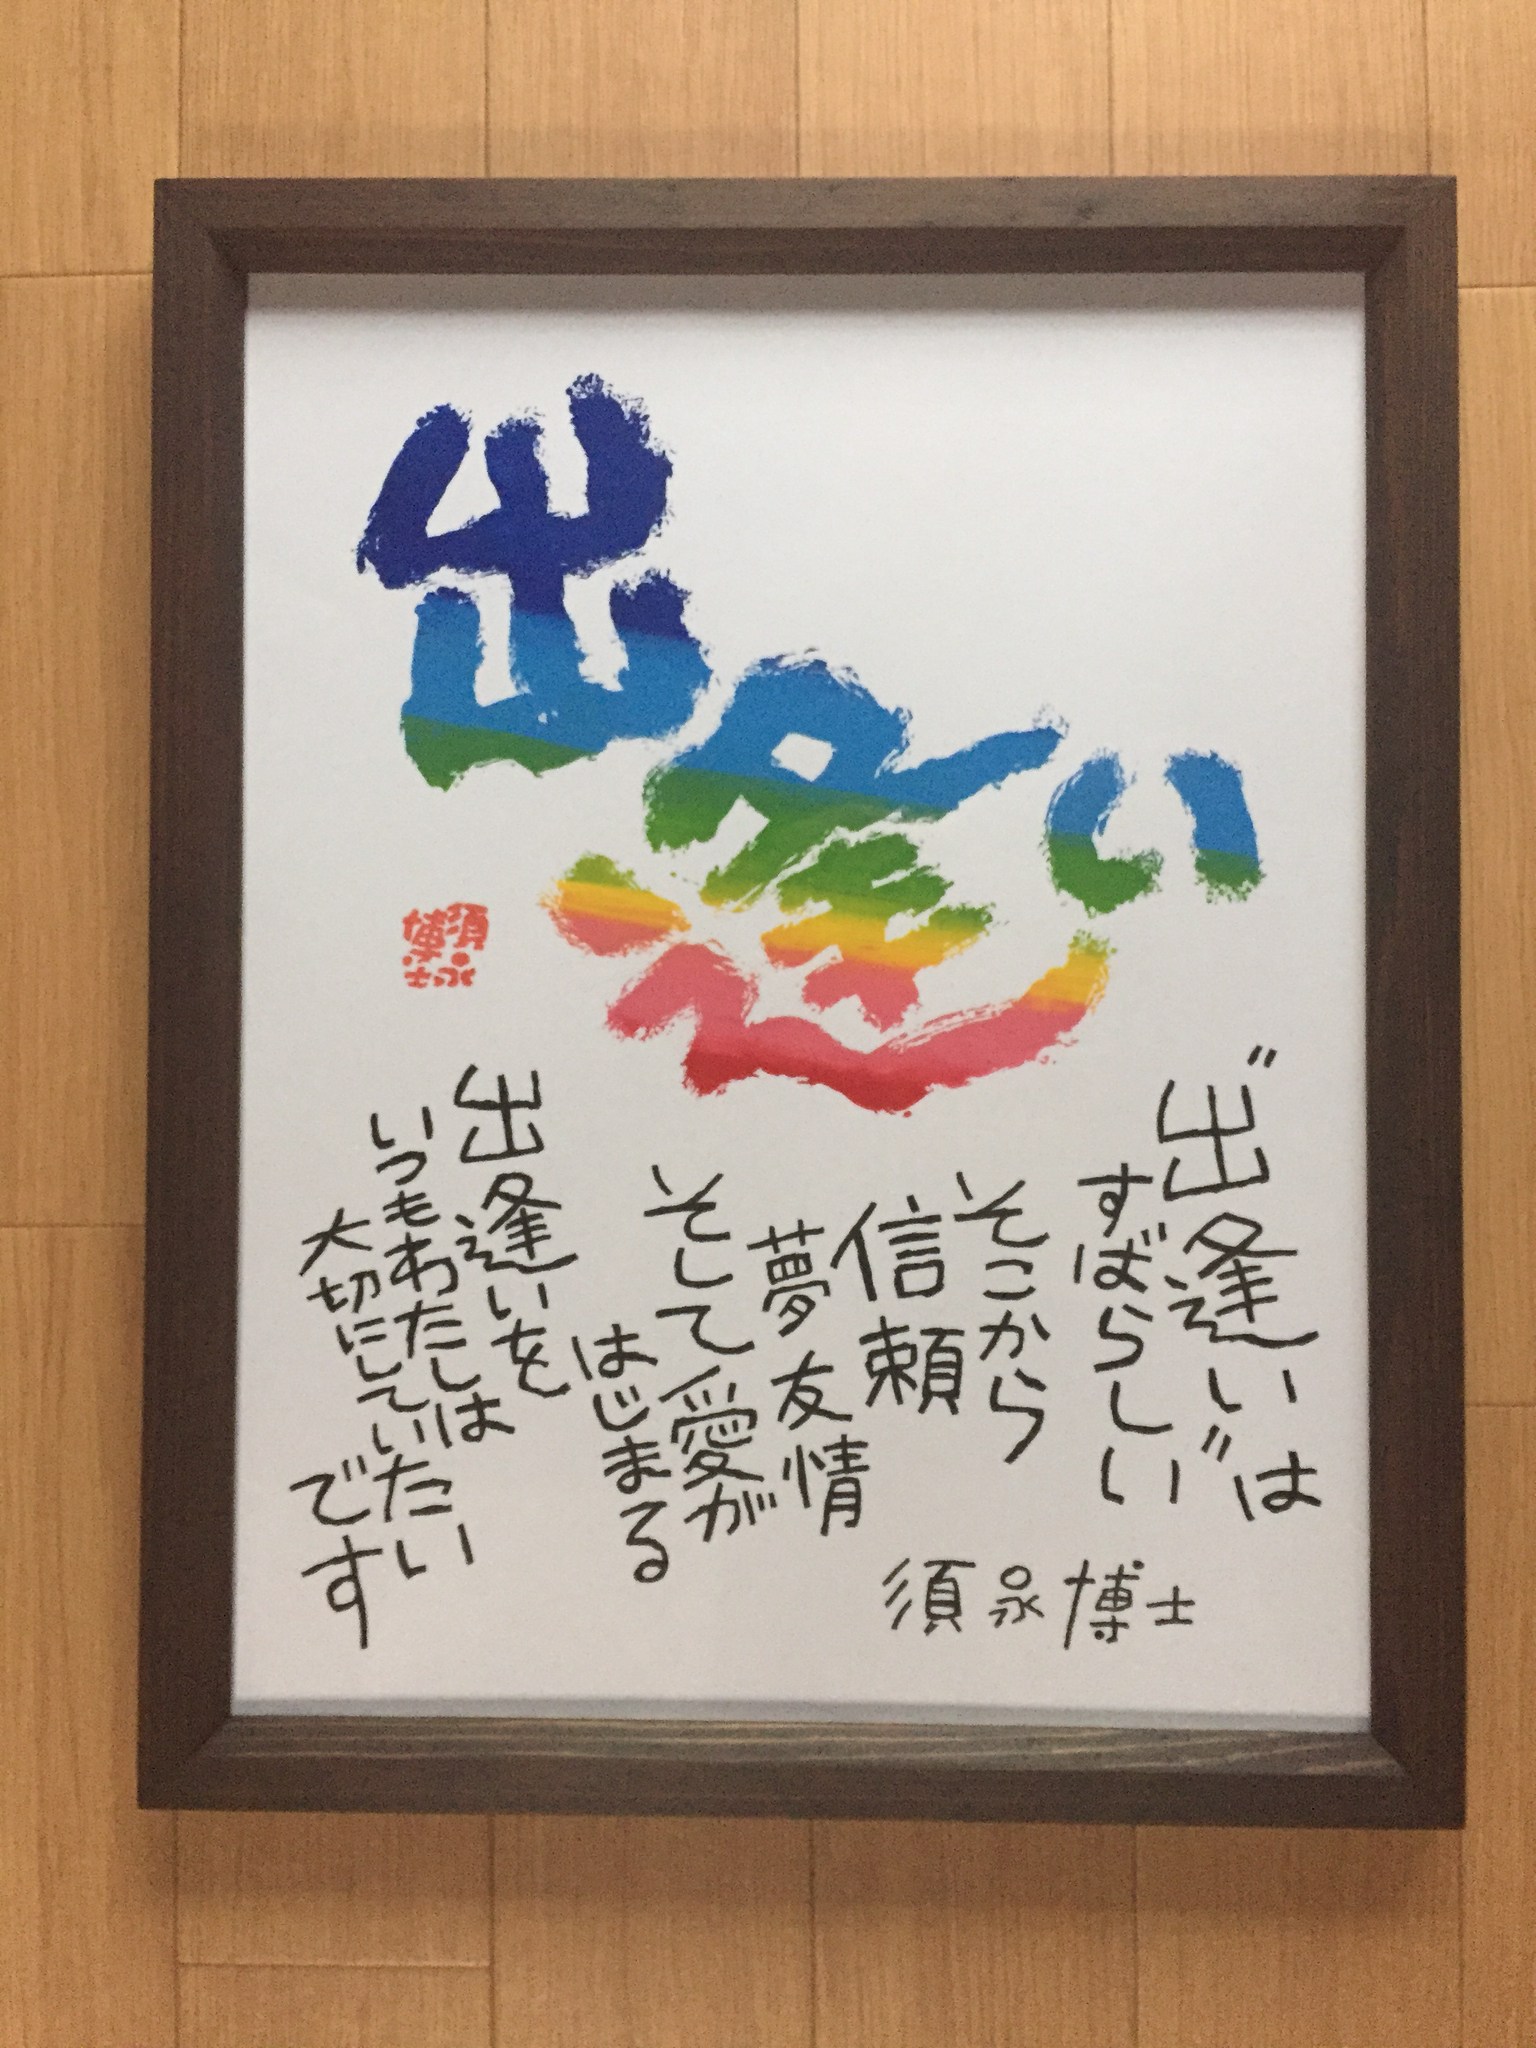 出逢い
“出逢い”は
すばらしい
そこから
信頼
夢 友情
そして愛が
はじまる
出逢いを
いつもわたしは
大切にしていたい
です
須永博士
須永
博士